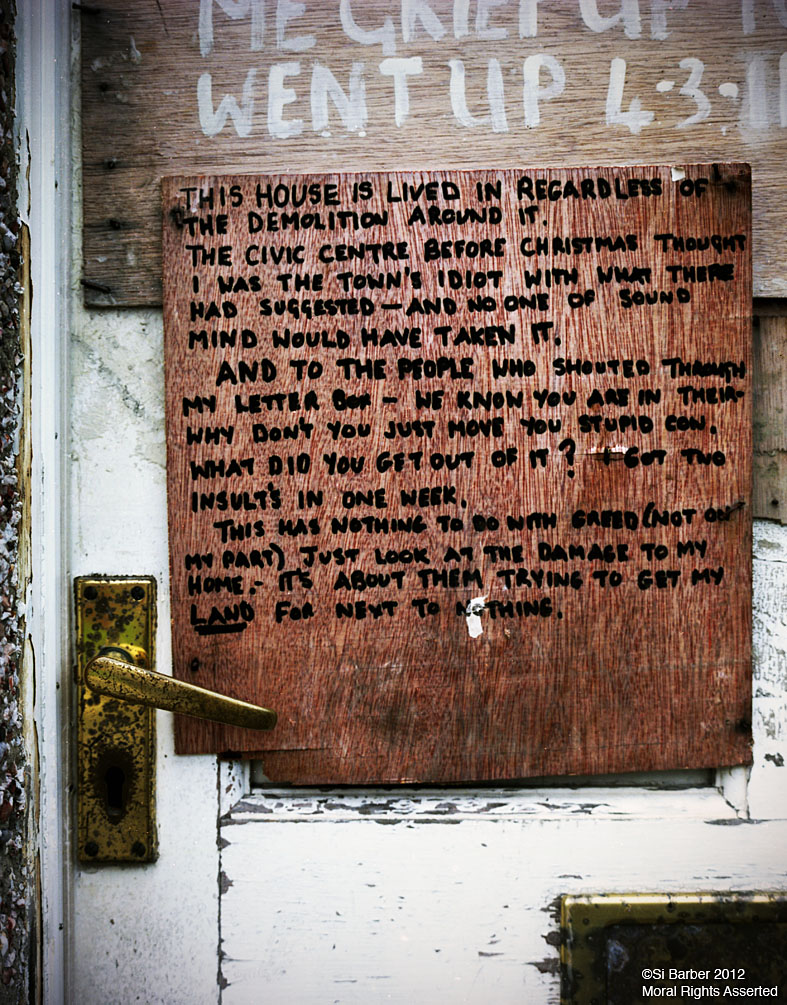 ME GRIEF UP
WENT UP 4.3.11
THIS HOUSE IS LIVED IN REGARDLESS OF
THE DEMOLITION AROUND IT.
THE CIVIC CENTRE BEFORE CHRISTMAS THOUGHT
I WAS THE TOWN'S IDIOT WITH WHAT THERE
HAD SUGGESTED – AND NO ONE OF SOUND
MIND WOULD HAVE TAKEN IT.
AND TO THE PEOPLE WHO SHOUTED THROUGH
MY LETTER BOX – WE KNOW YOU ARE IN THEIR-
WHY DON'T YOU JUST MOVE YOU STUPID COW.
WHAT DID YOU GET OUT OF IT? I GOT TWO
INSULT'S IN ONE WEEK.
THIS HAS NOTHING TO DO WITH GREED (NOT ON
MY PART) JUST LOOK AT THE DAMAGE TO MY
HOME.- ITS ABOUT THEM TRYING TO GET MY
LAND FOR NEXT TO NOTHING.
©Si Barber 2012
Moral Rights Asserted